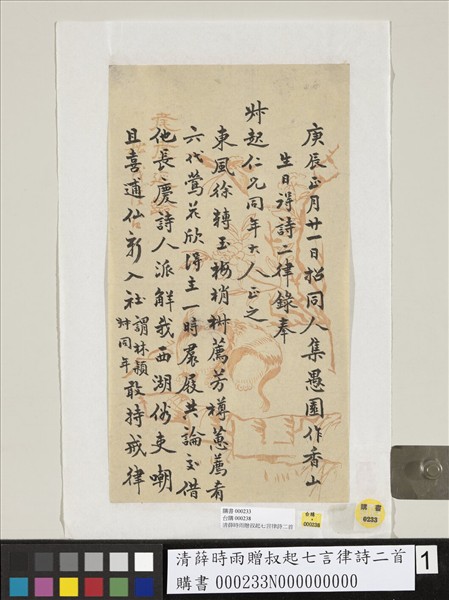 庚辰正月廿一日招同人集愚園作香山
生日得詩二律錄奉
艸起仁兄同年大人正之
東風徐轉玉梅梢艸薦芳樽蔥薦肴
六代鶯花欣得主一時裙屐共論交借
他長慶詩人派解我西湖俗吏嘲
且喜逋仙新入社謂林穎艸同年敢持戒律
購書 000233
台購 000238
清薛時雨贈叔起七言律詩二首
台購
000238
購書
0233
清薛時雨贈叔起七言律詩二首
購書 000233N000000000
1